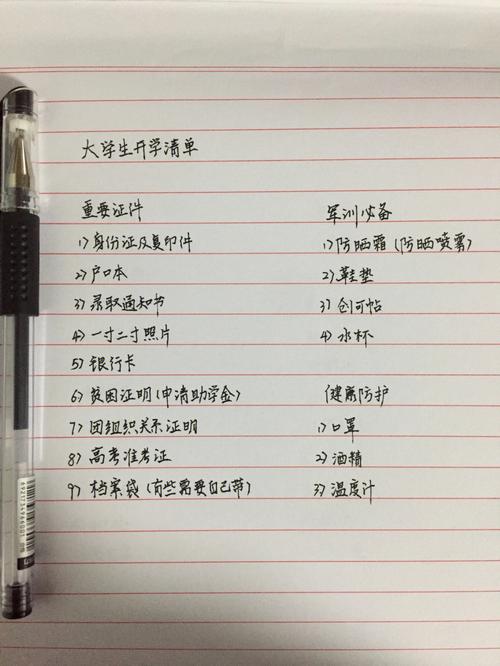 大学生开学清单
重要证件
1)身份证及复印件
2)户口本
3)录取通知书
4)一寸二寸照片
5)银行卡
6)贫困证明(申请助学金)
7)团组织关系证明
8)高考准考证
9)档案袋(有些需要自己带)
军训必备
1)防晒霜(防晒喷雾)
2)鞋垫
3)创可帖
4)水杯
健康防护
1)口罩
2)酒精
3)温度计